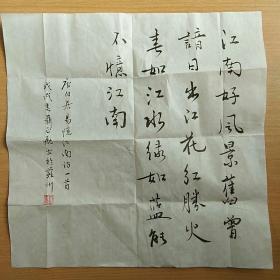 江南好風景舊曾
諳日出江花紅勝火
春如江水綠如藍能
不憶江南
唐白居易憶江南詞一首